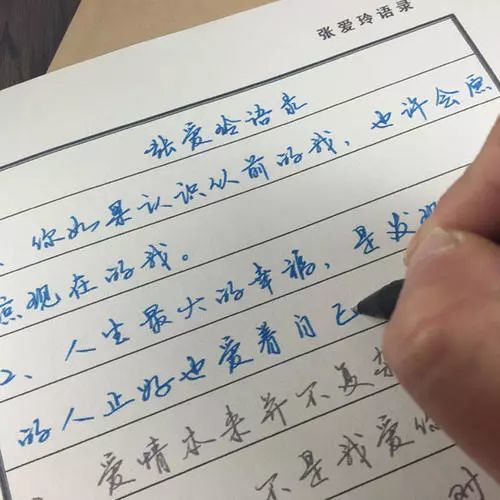 张爱玲语录
张爱玲语录
、你如果认识从前的我，也许会原
谅现在的我。
2、人生最大的幸福，是发现
的人正好也爱着自己
爱情本来并不复杂
不是我爱你